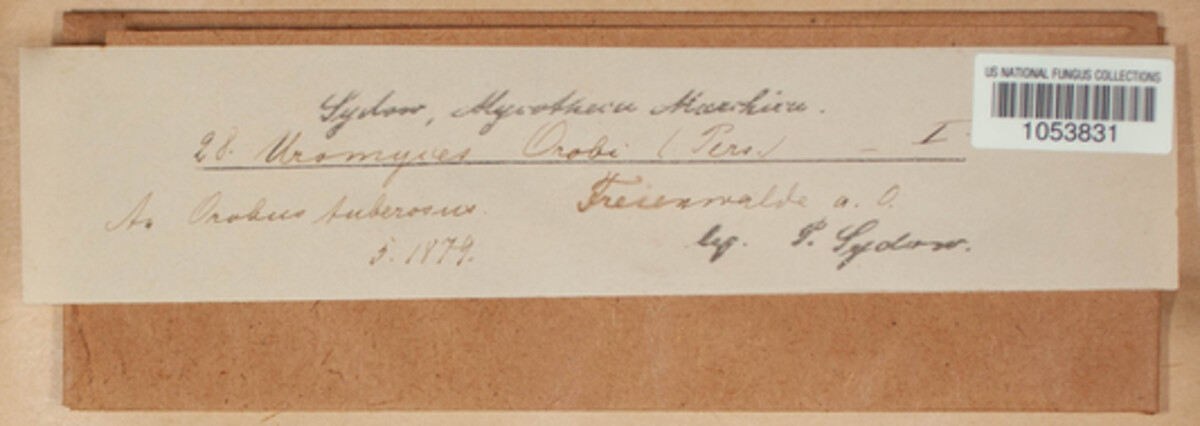 US NATIONAL FUNGUS COLLECTIONS
1053831
Sydow, Mycotheca Marchica.
28. Uromyces Orobi (Pers.) – I.
An Orobus tuberosus.
Freienwalde a. O.
5. 1879.
leg. P. Sydow.